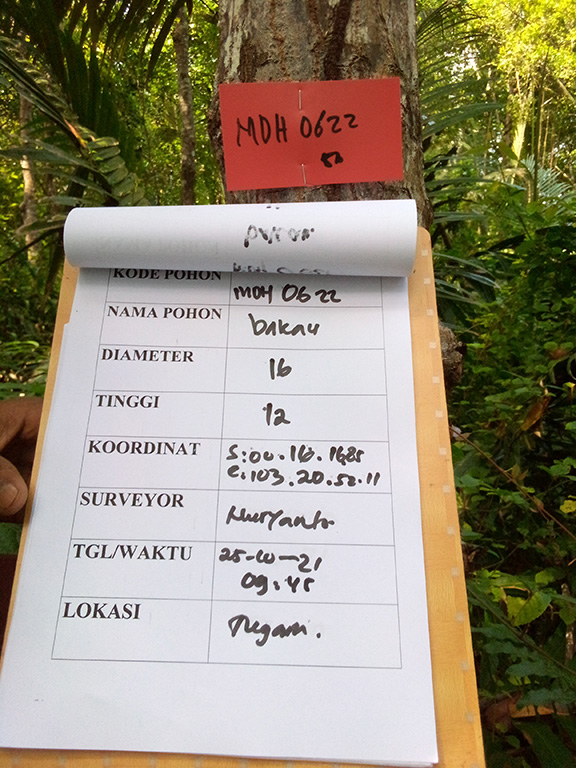 MDH 0622
pohon
KODE POHON
MDH 0622
NAMA POHON bakau
DIAMETER 16
TINGGI 12
KOORDINAT S:00.10.1685
E:103.20.52.11
SURVEYOR
TGL/WAKTU 25-10-21
09.45
LOKASI